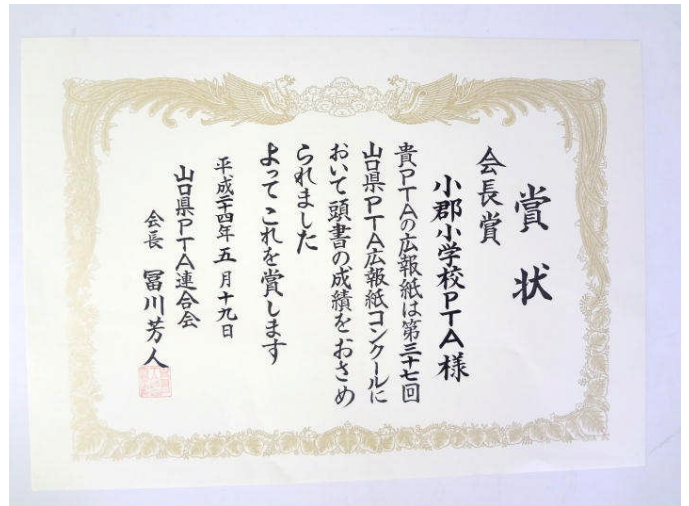 賞状
会長賞
小郡小学校PTA様
貴PTAの広報紙は第三十七回
山口県PTA広報紙コンクールに
おいて頭書の成績をおさめ
られました
よってこれを賞します
平成二十四年五月十九日
山口県PTA連合会
会長 冨川芳人